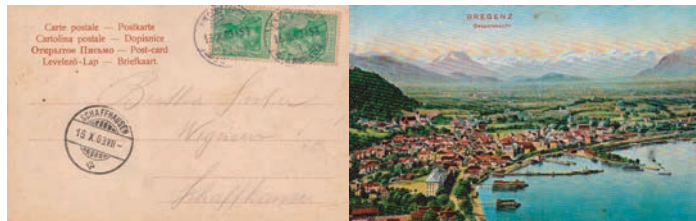 Carte postale — Postkarte
Cartolina postale — Dopisnice
Открытое Письмо — Post-card
Levelező-Lap — Briefkaart.
SCHAFFHAUSEN
Bertha
Schaffhausen
BREGENZ
Gesamtansicht